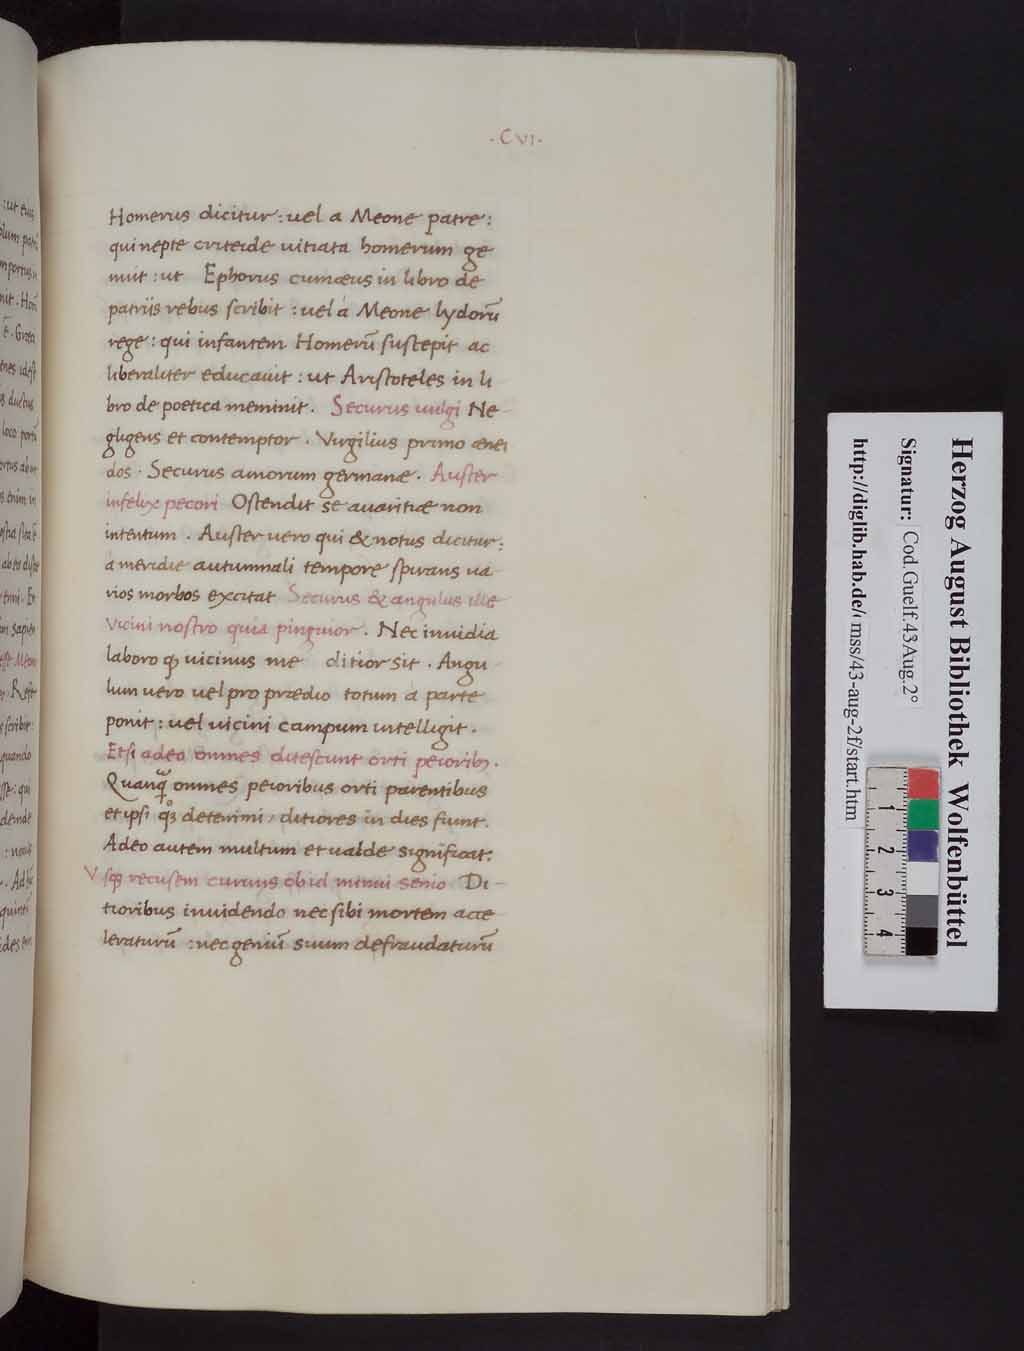 ·CVI·
Homerus dicitur: uel a Meone patre:
qui nepte criteide uitiata homerum ge
nuit: ut Ephorus cumæus in libro de
patriis rebus scribit: uel a Meone lydorū
rege: qui infantem Homerū suscepit ac
liberaliter educauit: ut Aristoteles in li
bro de poetica meminit. Securus uulgi Ne-
gligens et contemptor. Virgilius primo ænei
dos. Securus amorum germanæ. Auster
infelix pecori Ostendit se auaritiæ non
intentum. Auster uero qui & notus dicitur:
a meridie autumnali tempore spirans ua
rios morbos excitat Securus & angulus ille
Vicini nostro quia pinguior. Nec inuidia
laboro qꝫ uicinus me ditior sit. Angu
lum uero uel pro prædio totum a parte
ponit: uel uicini campum intelligit.
Etsi adeo omnes ditescunt orti peioribꝫ.
Quanqͣ omnes peioribus orti parentibus
et ipsi qꝫ deterimi, ditiores in dies fiunt.
Adeo autem multum et ualde significat:
Vsqꝫ recusem curuus ob id minui senio Di-
tioribus inuidendo nec sibi mortem acce
leraturū: nec geniū suum defraudaturū
Herzog August Bibliothek Wolfenbüttel
Signatur: Cod.Guelf.43Aug.2°
http://diglib.hab.de/mss/43-aug-2f/start.htm
1
2
3
4